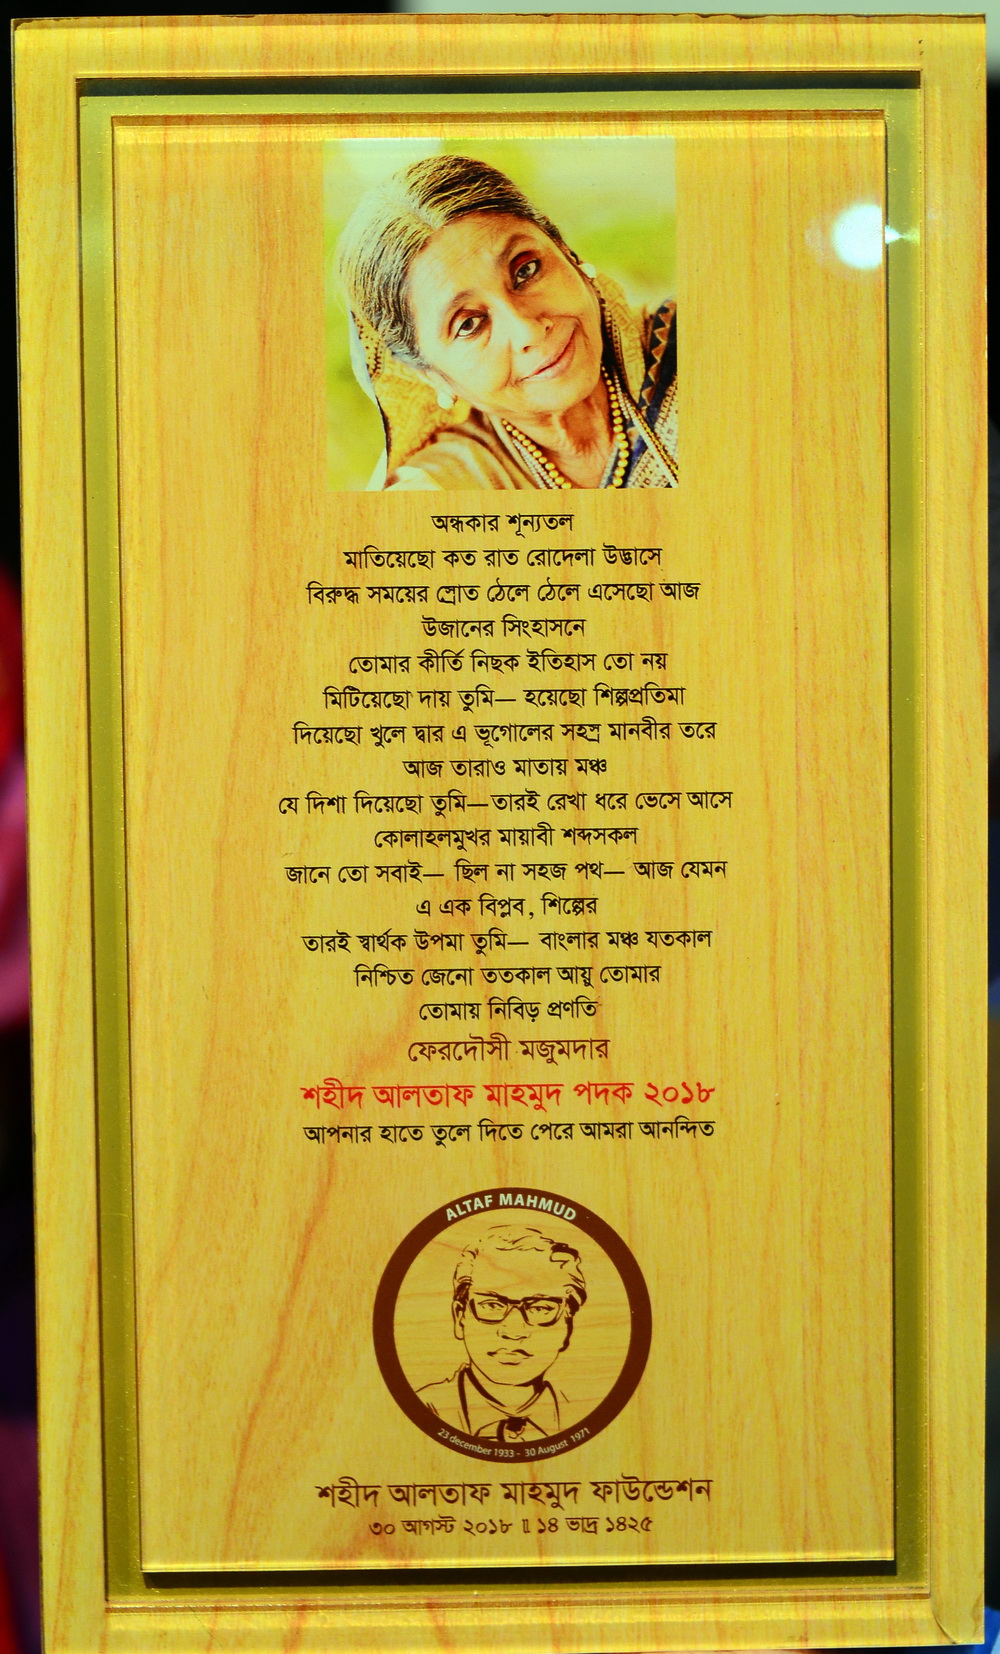 অন্ধকার শূন্যতল
মাতিয়েছো কত রাত রোদেলা উদ্ভাসে
বিরুদ্ধ সময়ের স্রোত ঠেলে ঠেলে এসেছো আজ
উজানের সিংহাসনে
তোমার কীর্তি নিছক ইতিহাস তো নয়
মিটিয়েছো দায় তুমি— হয়েছো শিল্পপ্রতিমা
দিয়েছো খুলে দ্বার এ ভূগোলের সহস্র মানবীর তরে
আজ তারাও মাতায় মঞ্চ
যে দিশা দিয়েছো তুমি—তারই রেখা ধরে ভেসে আসে
কোলাহলমুখর মায়াবী শব্দসকল
জানে তো সবাই— ছিল না সহজ পথ— আজ যেমন
এ এক বিপ্লব, শিল্পের
তারই স্বার্থক উপমা তুমি— বাংলার মঞ্চ যতকাল
নিশ্চিত জেনো ততকাল আয়ু তোমার
তোমায় নিবিড় প্রণতি
ফেরদৌসী মজুমদার
শহীদ আলতাফ মাহমুদ পদক ২০১৮
আপনার হাতে তুলে দিতে পেরে আমরা আনন্দিত
ALTAF MAHMUD
23 december 1933 - 30 August 1971
শহীদ আলতাফ মাহমুদ ফাউন্ডেশন
৩০ আগস্ট ২০১৮ ॥ ১৪ ভাদ্র ১৪২৫